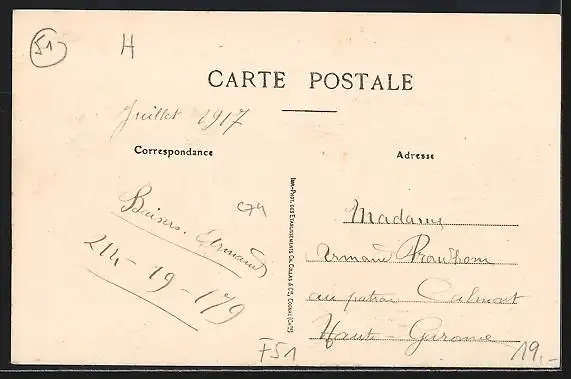 51
H
CARTE POSTALE
Juillet 1917
Correspondance
Adresse
C74
Baisers. Armand
214-19-179
Imp. Phot. des Etablissements Ch. Collas & Cie, Cognac (Cte)
Madame
Armand
au patran Calmont
Haute-Garonne
F51
19,-